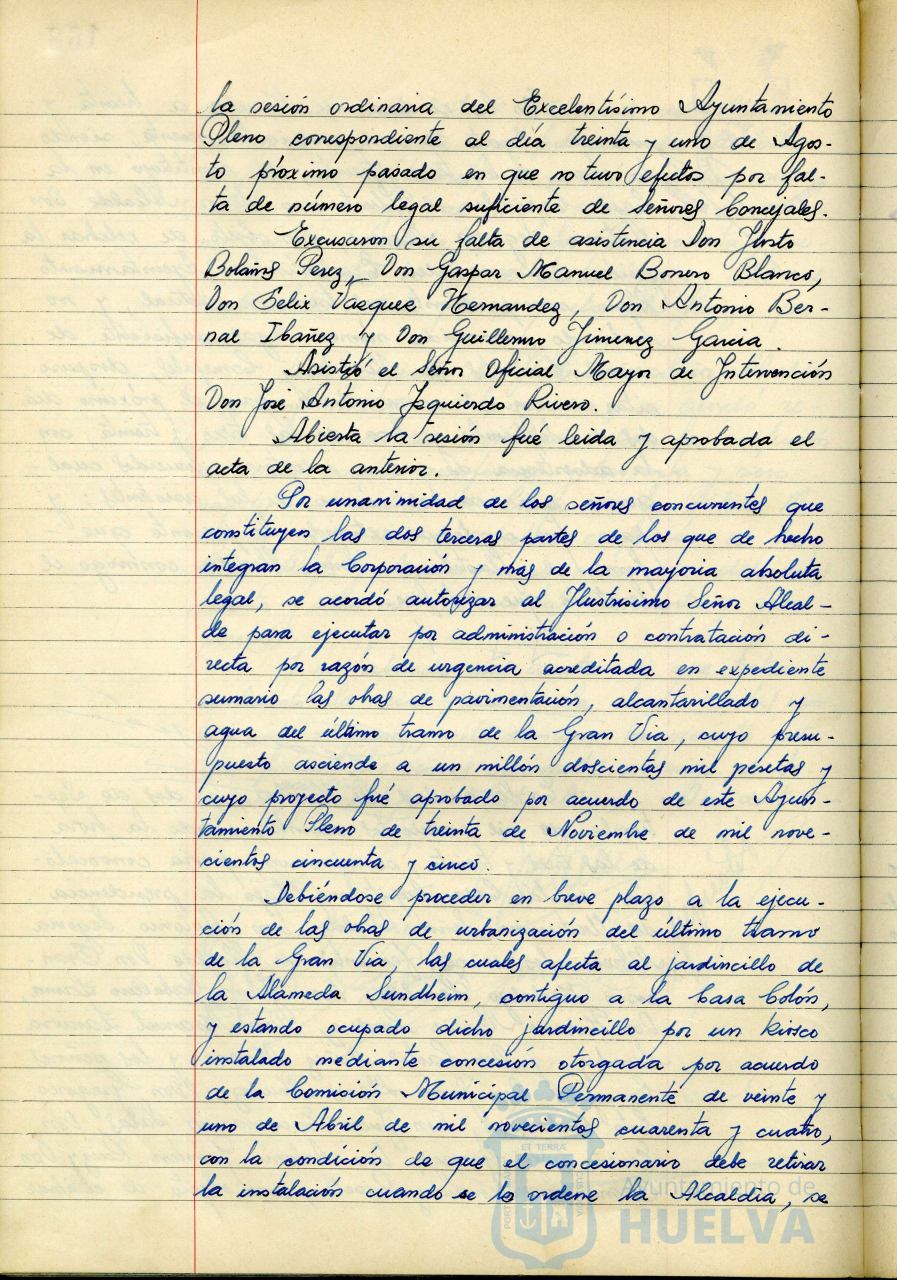 la sesión ordinaria del Excelentísimo Ayuntamiento
Pleno correspondiente al día treinta y uno de Agos-
to próximo pasado en que no tuvo efectos por fal-
ta de número legal suficiente de Señores Concejales.
Excusaron su falta de asistencia Don Justo
Bolaños Perez, Don Gaspar Manuel Bonero Blanco,
Don Felix Vazquez Hernandez, Don Antonio Ber-
nal Ibañez y Don Guillermo Jimenez Garcia.
Asistió el Señor Oficial Mayor de Intervención
Don José Antonio Izquierdo Rivero.
Abierta la sesión fué leida y aprobada el
acta de la anterior.
Por unanimidad de los señores concurrentes que
constituyen las dos terceras partes de los que de hecho
integran la Corporación y más de la mayoria absoluta
legal, se acordó autorizar al Ilustrisimo Señor Alcal-
de para ejecutar por administración o contratación di-
recta por razón de urgencia acreditada en expediente
sumario las obras de pavimentación, alcantarillado y
agua del último tramo de la Gran Via, cuyo presu-
puesto asciende a un millón doscientas mil pesetas y
cuyo proyecto fué aprobado por acuerdo de este Ayun-
tamiento Pleno de treinta de Noviembre de mil nove-
cientos cincuenta y cinco.
Debiéndose proceder en breve plazo a la ejecu-
ción de las obras de urbanización del último tramo
de la Gran Via, las cuales afecta al jardincillo de
la Alameda Sundheim, contiguo a la Casa Colón,
y estando ocupado dicho jardincillo por un kiosco
instalado mediante concesión otorgada por acuerdo
de la Comisión Municipal Permanente de veinte y
uno de Abril de mil novecientos cuarenta y cuatro,
con la condición de que el concesionario debe retirar
la instalación cuando se lo ordene la Alcaldia, se
Ayuntamiento de
HUELVA